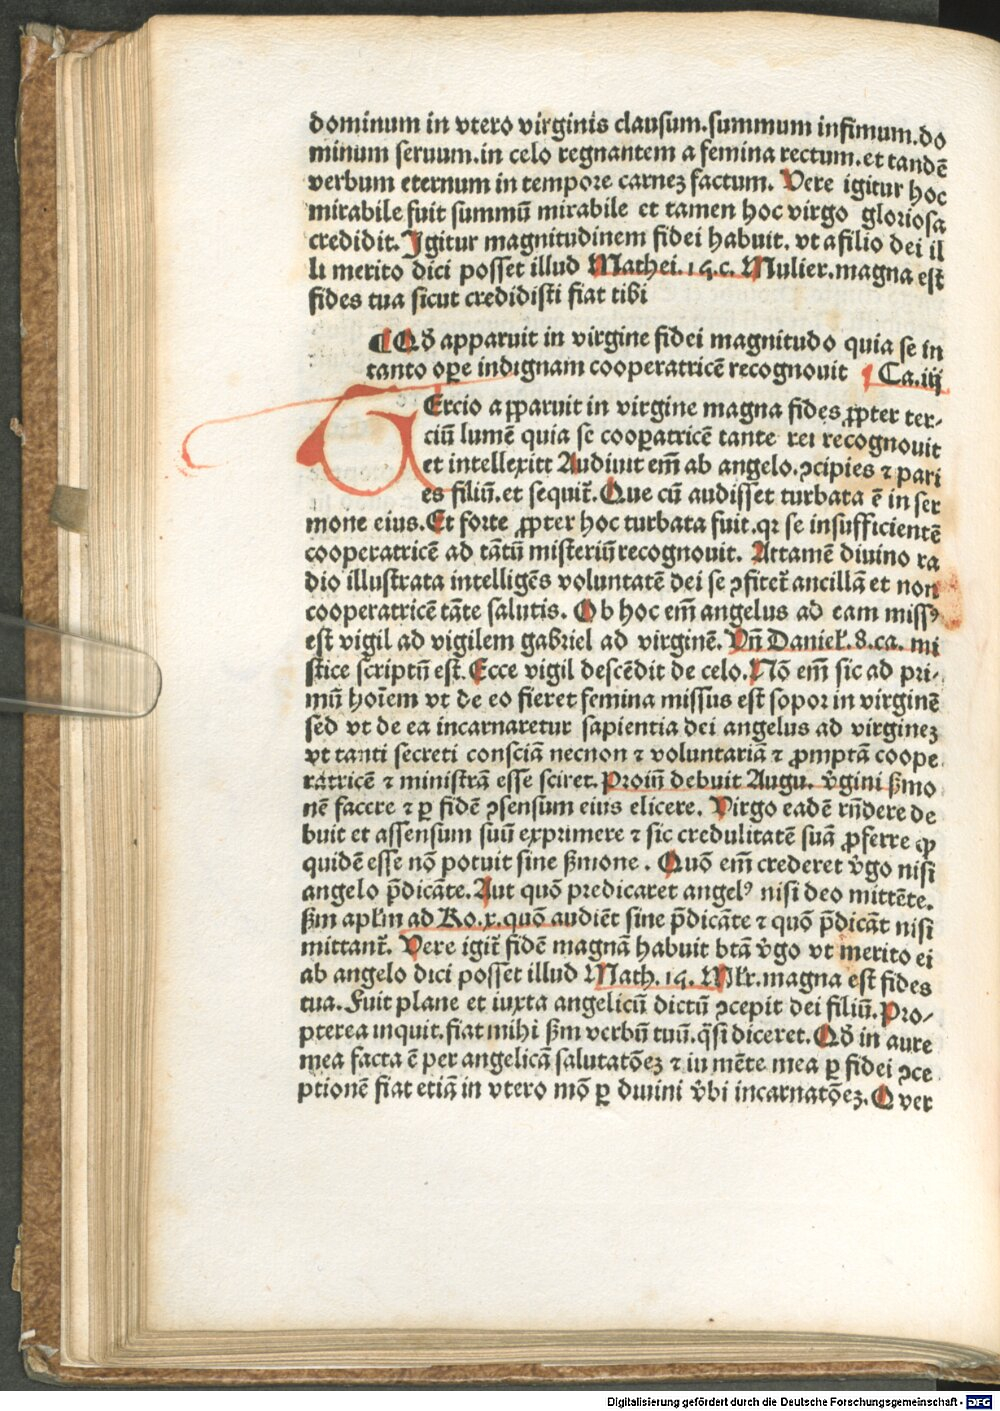 dominum in vtero virginis clausum.summum infimum.do
minum seruum.in celo regnantem a femina rectum.et tandē
verbum eternum in tempore carneʒ factum. Vere igitur hoc
mirabile fuit summū mirabile et tamen hoc virgo gloriosa
credidit. Igitur magnitudinem fidei habuit. vt a filio dei il
li merito dici posset illud Mathei. 15.c. Mulier.magna est
fides tua sicut credidisti fiat tibi
¶ Qđ apparuit in virgine fidei magnitudo quia se in
tanto oꝑe indignam cooperatricē recognouit ¶ Ca.iij
TErcio aꝑparuit in virgine magna fides ꝓpter ter⸗
ciū lumē quia se cooꝑatricē tante rei recognouit
et intellexitt Audiuit em̄ ab angelo.ↄcipies ⁊ pari
es filiū.et sequit᷑. Que cū audisset turbata ē in ser
mone eius.Et forte ꝓpter hoc turbata fuit.qꝛ se insufficientē
cooperatricē ad tātū misteriū recognouit. Attamē diuino ra
dio illustrata intelligēs voluntatē dei se ↄfitet᷑ ancillā et non
cooperatricē tāte salutis. Ob hoc em̄ angelus ad eam missꝰ
est vigil ad vigilem gabriel ad virginē. Vn̄ Danieł.8.ca. mi
stice scriptū est. Ecce vigil descēdit de celo. Nō em̄ sic ad pri⸗
mū hoīem vt de eo fieret femina missus est sopor in virginē
sed vt de ea incarnaretur sapientia dei angelus ad virgineʒ
vt tanti secreti consciā necnon ⁊ voluntariā ⁊ ꝓmptā coope
ratricē ⁊ ministrā esse sciret. Proin̄ debuit Augu. v̉gini ẜmo
nē facere ⁊ ꝑ fidē ↄsensum eius elicere. Virgo eadē rn̄dere de
buit et assensum suū exprimere ⁊ sic credulitatē suā ꝓferre ꝙ
quidē esse nō potuit sine ẜmone . Quō em̄ crederet v̉go nisi
angelo p̄dicāte. Aut quō predicaret angelꝰ nisi deo mittēte.
ẜm apłm ad Ro.x.quō audiēt sine p̄dicāte ⁊ quō p̄dicāt nisi
mittant᷑. Vere igit᷑ fidē magnā habuit btā v̉go vt merito ei
ab angelo dici posset illud Math. 15. Młr.magna est fides
tua. Fuit plane et iuxta angelicū dictū ↄcepit dei filiū. Pro⸗
pterea inquit.fiat mihi ẜm verbū tuū.q̄si diceret. Qđ in aure
mea facta ē per angelicā salutatōeʒ ⁊ in mēte mea ꝑ fidei ↄce
ptionē fiat etiā in vtero mō ꝑ diuini v̉bi incarnatōeʒ. O ver
Digitalisierung gefördert durch die Deutsche Forschungsgemeinschaft - DFG